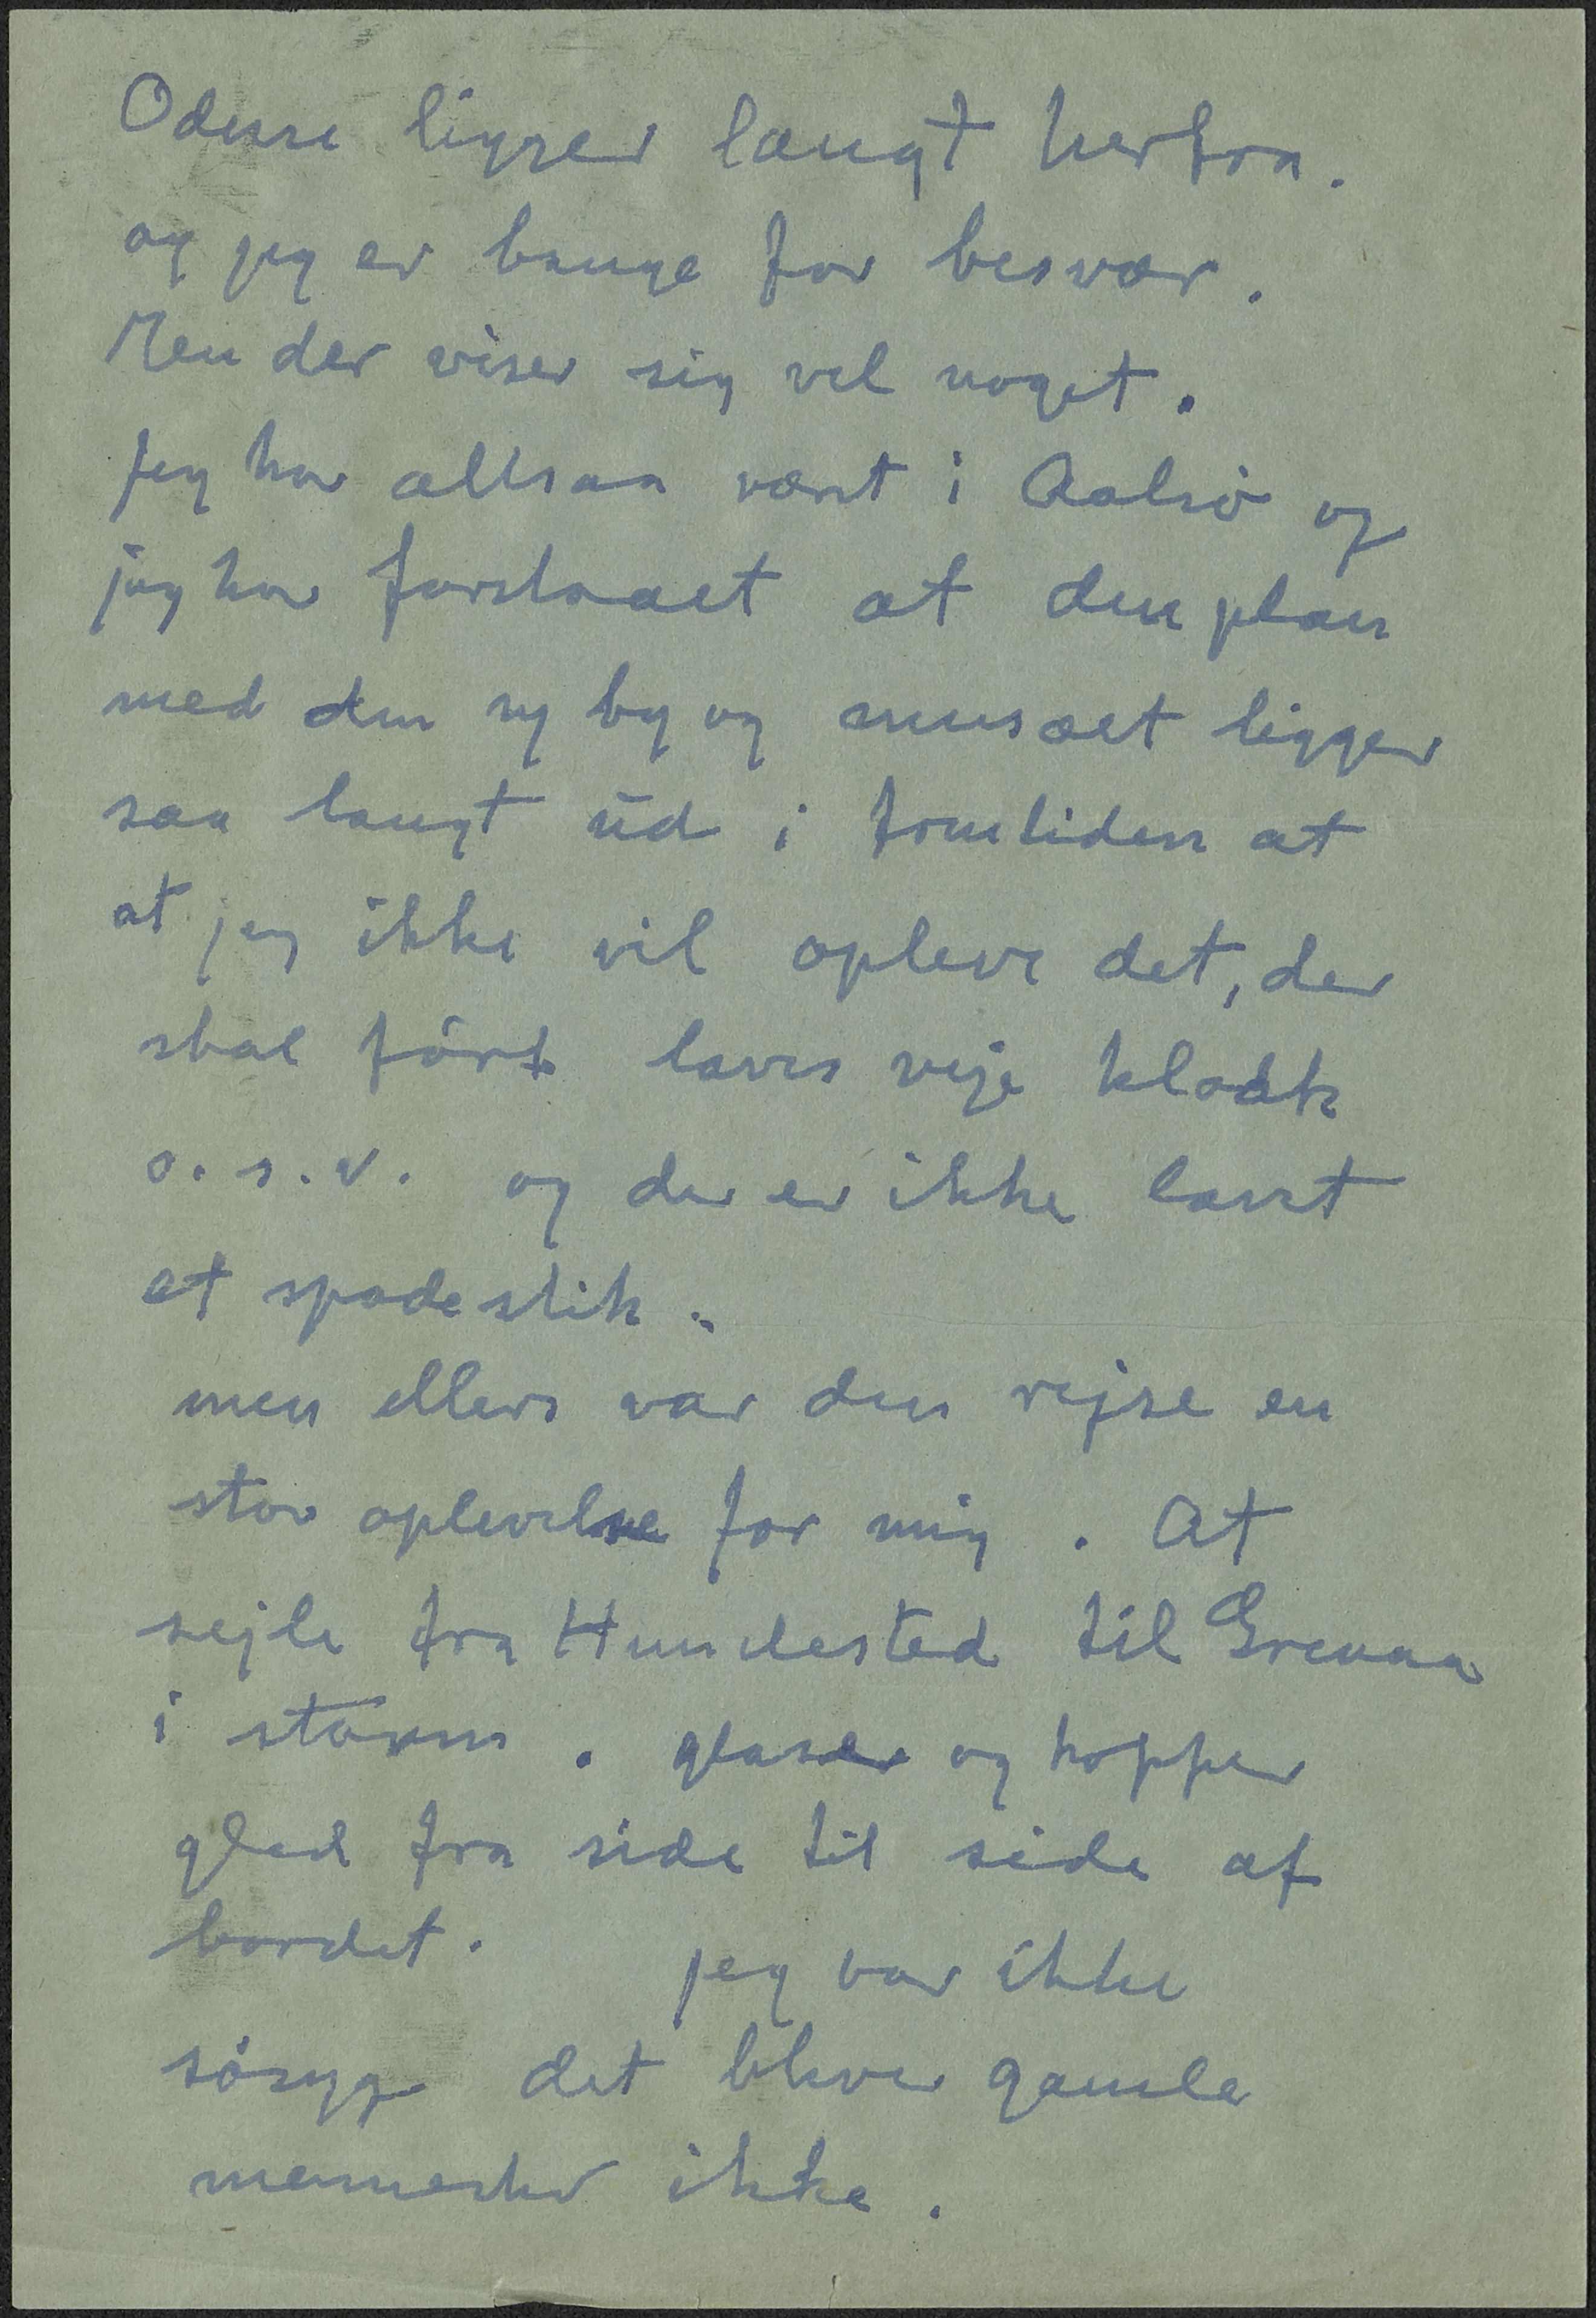 Odense ligger langt herfra.
og jeg er bange for besvær.
Men der viser sig vel noget.
Jeg har altsaa været i Aalsø og
jeg har forstaaet at den plan
med den ny by og musæet ligger
saa langt ud i fremtiden at
at jeg ikke vil opleve det, der
skal først laves veje kloak
o.s.v. og der er ikke lavet
et spadestik.
men ellers var den rejse en
stor oplevelse for mig. At
sejle fra Hundested til Grenaa
i storm. glasene og kopper
gled fra side til side af
bordet. jeg var ikke
søsyg det bliver gamle
mennesker ikke.